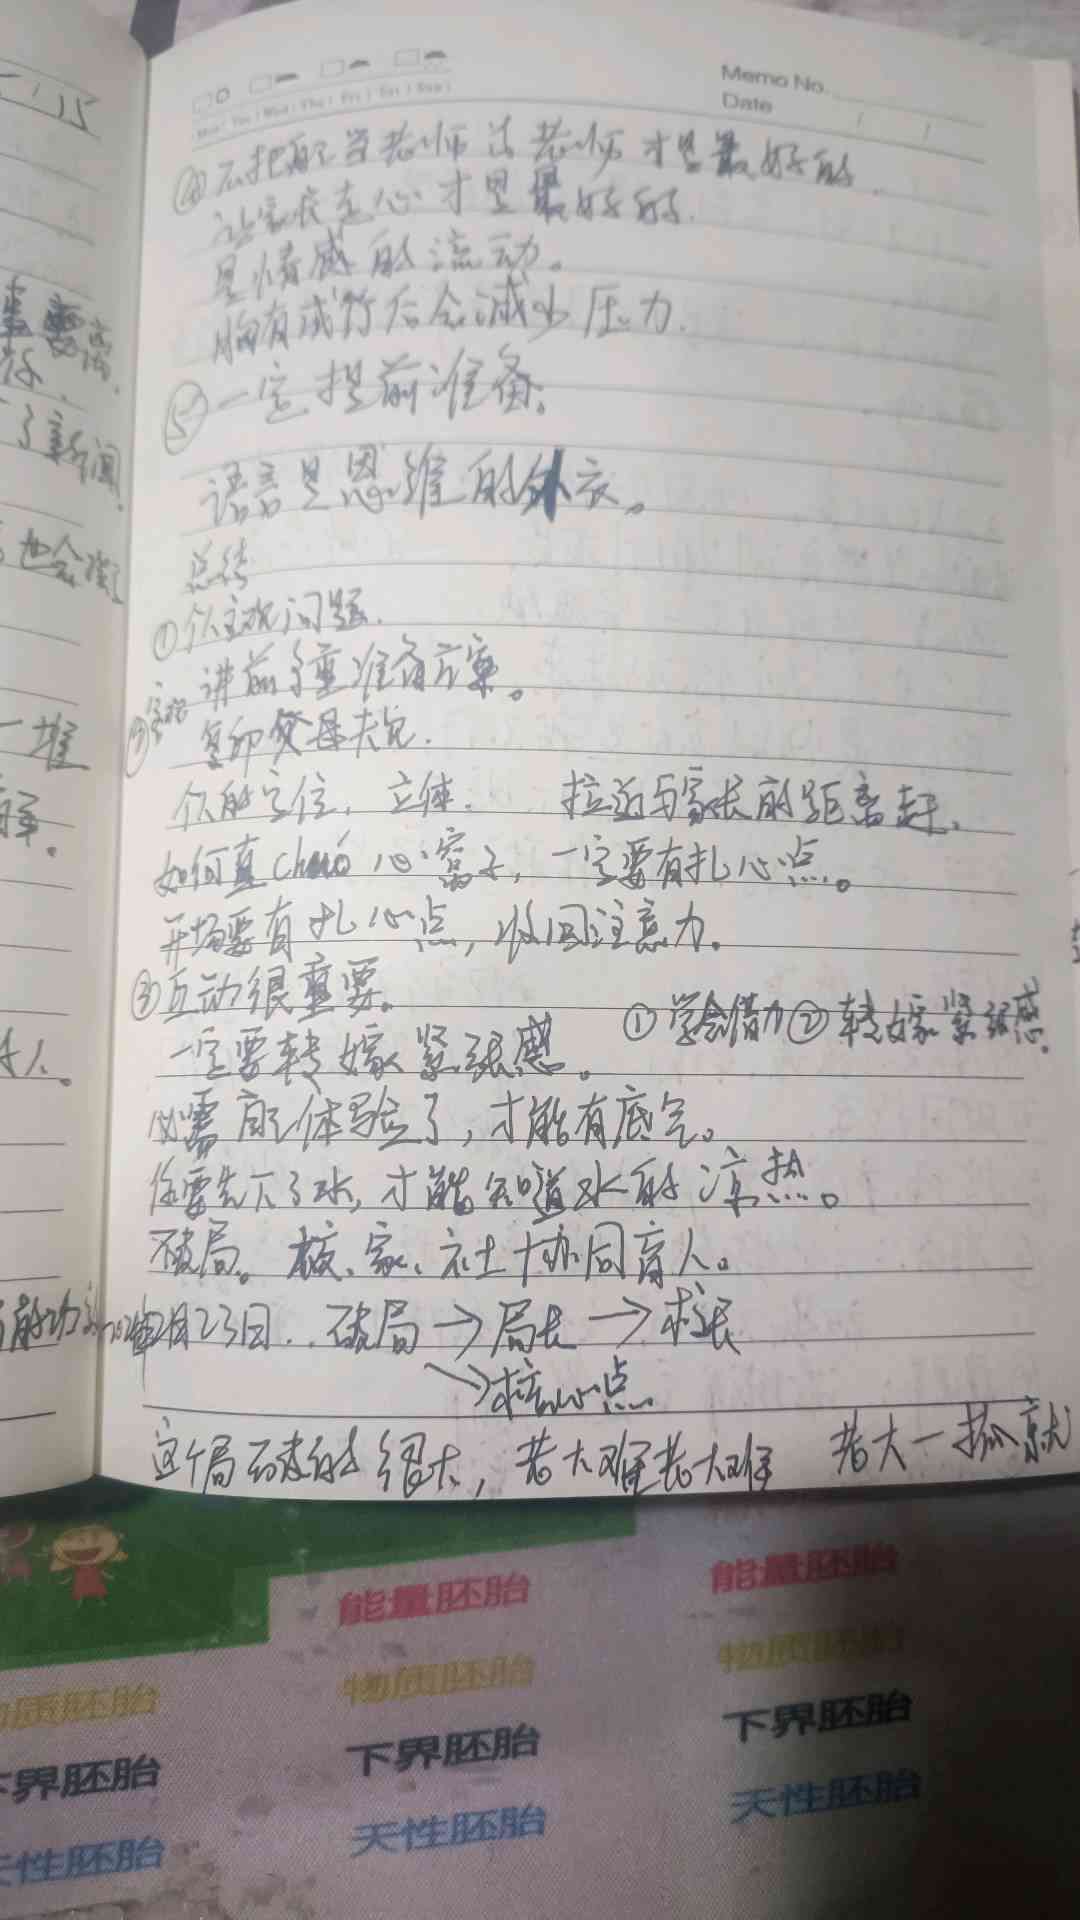 Memo No.
Date
Mon Tue Wed Thu Fri Sat Sun
④不把自己当老师 讲老师才是最好的.
让家长走心才是最好的.
是情感的流动。
胸有成竹后会减少压力.
⑤一定提前准备。
语言是思维的外衣。
总结
①个人主观问题.
讲前了重准备方案。
复印父母
个人的定位，立体. 拉近与家长的距离
如何直chuō心窝子，一定要有扎心点。
开场要有扎心点，收回注意力。
③互动很重要。
①学会借力②转嫁紧张感.
一定要转嫁紧张感。
必需自己体验了，才能有底气。
你要先下了水，才能知道水的凉热。
破局。校、家、社十协同育人。
2月23日. 破局→局长→校长
→核心点
这个局破的很大，老大难老大难 老大一抓就
15
重要
了新闻
也会
一堆
人。
能量胚胎 能量胚胎
物质胚胎 物质胚胎 物质胚胎
下界胚胎 下界胚胎 下界胚胎
天性胚胎 天性胚胎 天性胚胎